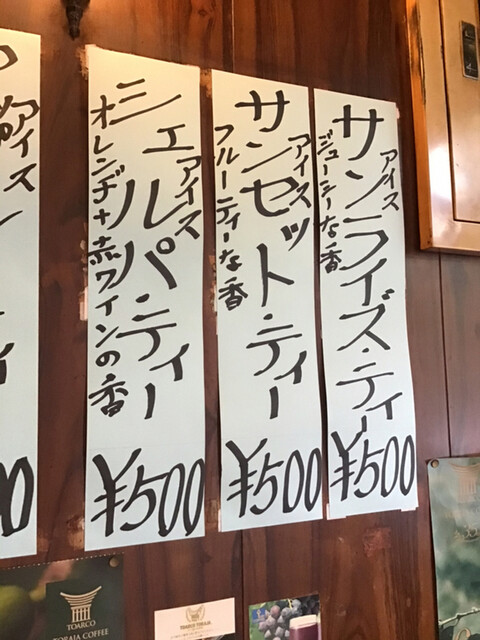 サンライズ・ティー
アイス
ジューシーな香
¥500
サンセット・ティー
アイス
フルーティーな香
¥500
シェルパティー
アイス
オレンヂ+赤ワインの香
¥500
アイス
TOARCO
TORAJA COFFEE